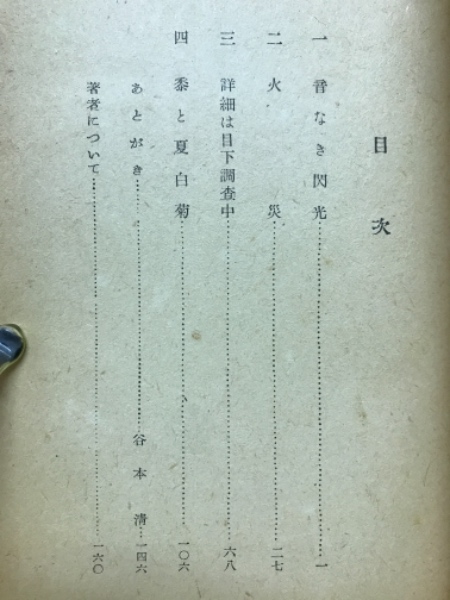 目次
一 音なき閃光……一
二 火災……二七
三 詳細は目下調査中……六八
四 黍と夏白菊……一〇六
あとがき……谷本清…一四六
著者について……一六〇